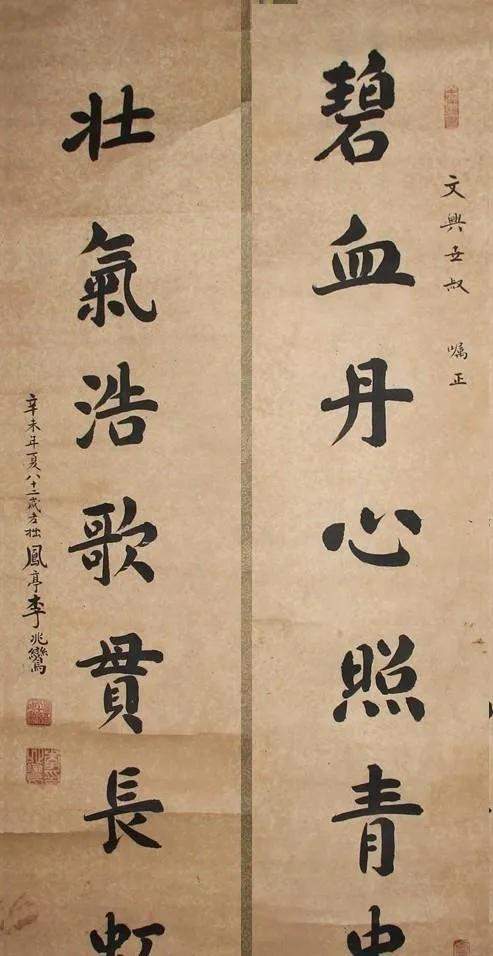 文興世叔 嘱正
碧血丹心照青史
壯氣浩歌貫長虹
辛未年夏八十二歲老拙鳳亭李兆鸞